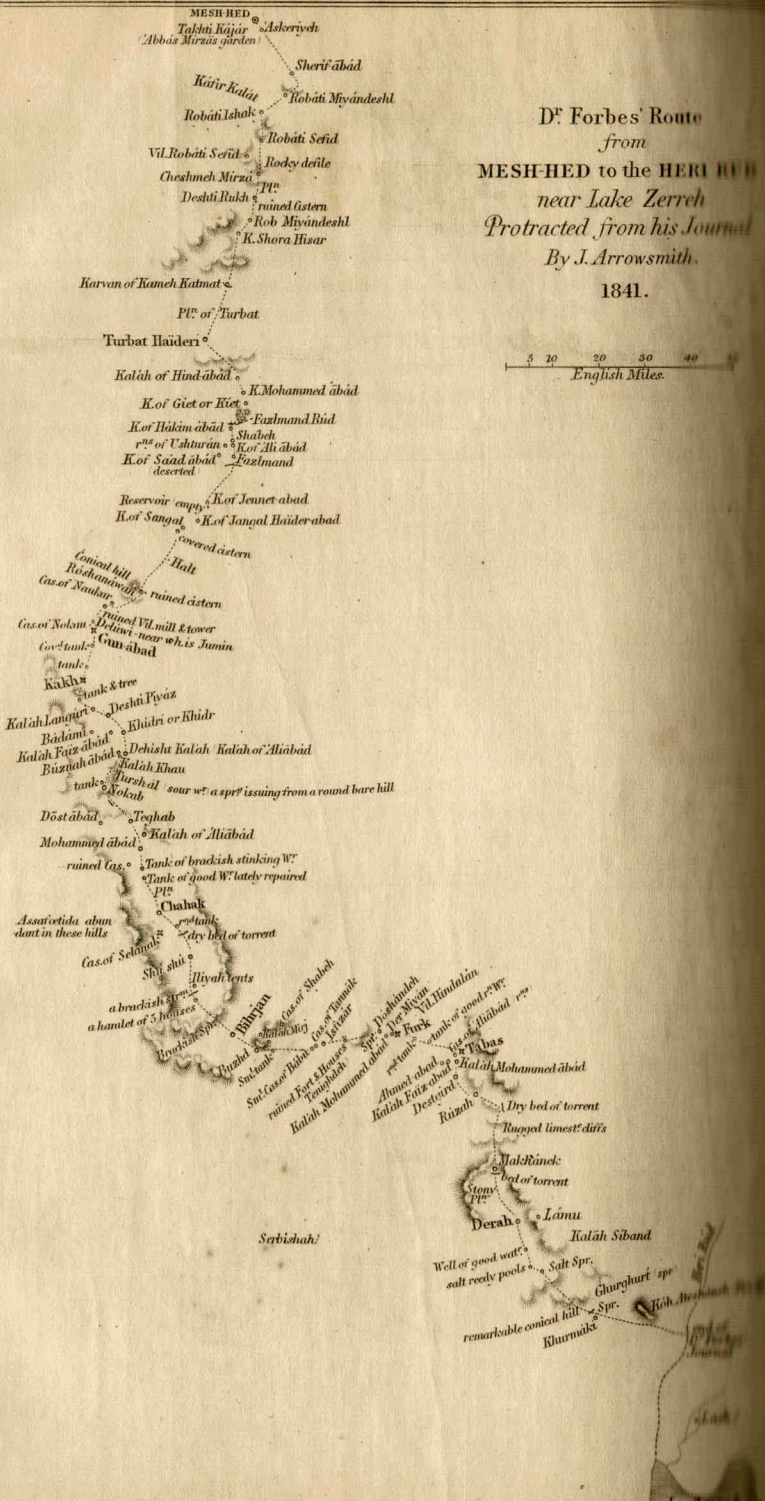 MESH-HED
Takhti Kájár
(Abbás Mirzás garden)
Askeriyeh
Sherif-ábád
Káfir Kalát
Robáti Miyándeshl
Robáti Ishak
Robáti Sefid
Vil. Robáti Sefid
Rocky defile
Cheshmeh Mirzá
Pln.
Deshti Rukh
ruined Cistern
Rob Miyándeshl
K. Shora Hisar
Karvan of Kameh Katmat
Pln. of Turbat
Turbat Haïderi
Kaláh of Hind-ábád
K. Mohammed ábád
K. of Giet or Kiet
Fazlmand Rúd
K. of Hákim-ábád
Shabeh
rns of Ushturán
K. of Ali ábád
K. of Saád ábád
deserted
Fazlmand
Reservoir empty
K. of Jennet-abad
K. of Sangal
K. of Jangal Haïder-abad
covered cistern
Halt
Conical hill
Róshanáwan
Cas. of Naukur
ruined cistern
ruined Vil. mill & tower
Cas. of Nokau
Delüwi-near wh. is Jumin
Covd. tank
Gun-ábad
tank
Kakh
tank & tree
Kaláh Languri
Deshti Piyáz
Bádámi
Khidri or Khidr
Kaláh Faiz-ábád
Búznah ábád
Dehisht Kaláh / Kaláh of Áliábád
Kaláh Khau
Turshál (sour wr. a sprg. issuing from a round bare hill
tank
Nokab
Dōstábád
Teghab
Kaláh of Áliábád
Mohammed ábád
ruined Cas.
Tank of brackish stinking Wr.
Tank of good Wr. lately repaired
Pln.
Chahak
Assafœtida abun
dant in these hills
rnd tank
dry bed of torrent
Cas. of Selának
Shú shú
Iliyah tents
a brackish strm.
a hamlet of 5 houses
Brackish Spr.
Bihrjan
Buzhd
Kaláh Múj
Cas. of Shabeh
Sml. tank
Sml. Cas. of Bábá
Cas. of Tannák
Isfizar
ruined Fort & Houses
Tenighdeh
Kaláh Mohammed abád
Spr.
Dioshándeh
Der Miyán
Vil. Hindalán
Furk
rnd tank
tank of good rn. Wr.
Cas. of Áliábád rns
Tabas
Ahmed-abad
Kaláh Faiz-abad
Destgird
Kaláh Mohammed ábád
Rúzah
Dry bed of torrent
Rugged limest. cliffs
Makhánek
bed of torrent
Stony
Pln.
Derah
Lámu
Kaláh Siband
Serbishah?
Well of good watr.
salt reedy pools
Salt Spr.
Ghurghuri (spr
Spr.
remarkable conical hill
Khurmáki
Kóh
Journal
Dr. Forbes' Route
from
MESH-HED to the HERI RUD
near Lake Zerreh
Protracted from his Journal
By J. Arrowsmith.
1841.
5 10 20 30 40
English Miles.